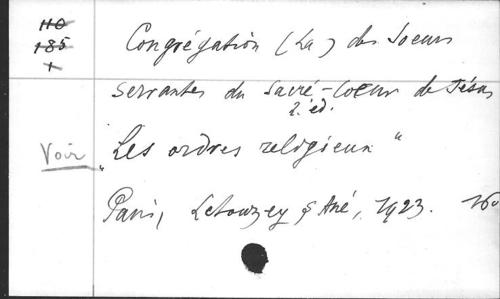 110
185
+
Congrégation (La) des Soeurs
Servantes du Sacré-Coeur de Jésus
2. éd.
Voir "Les ordres religieux"
Paris, Letouzey & Ané, 1923. 16o